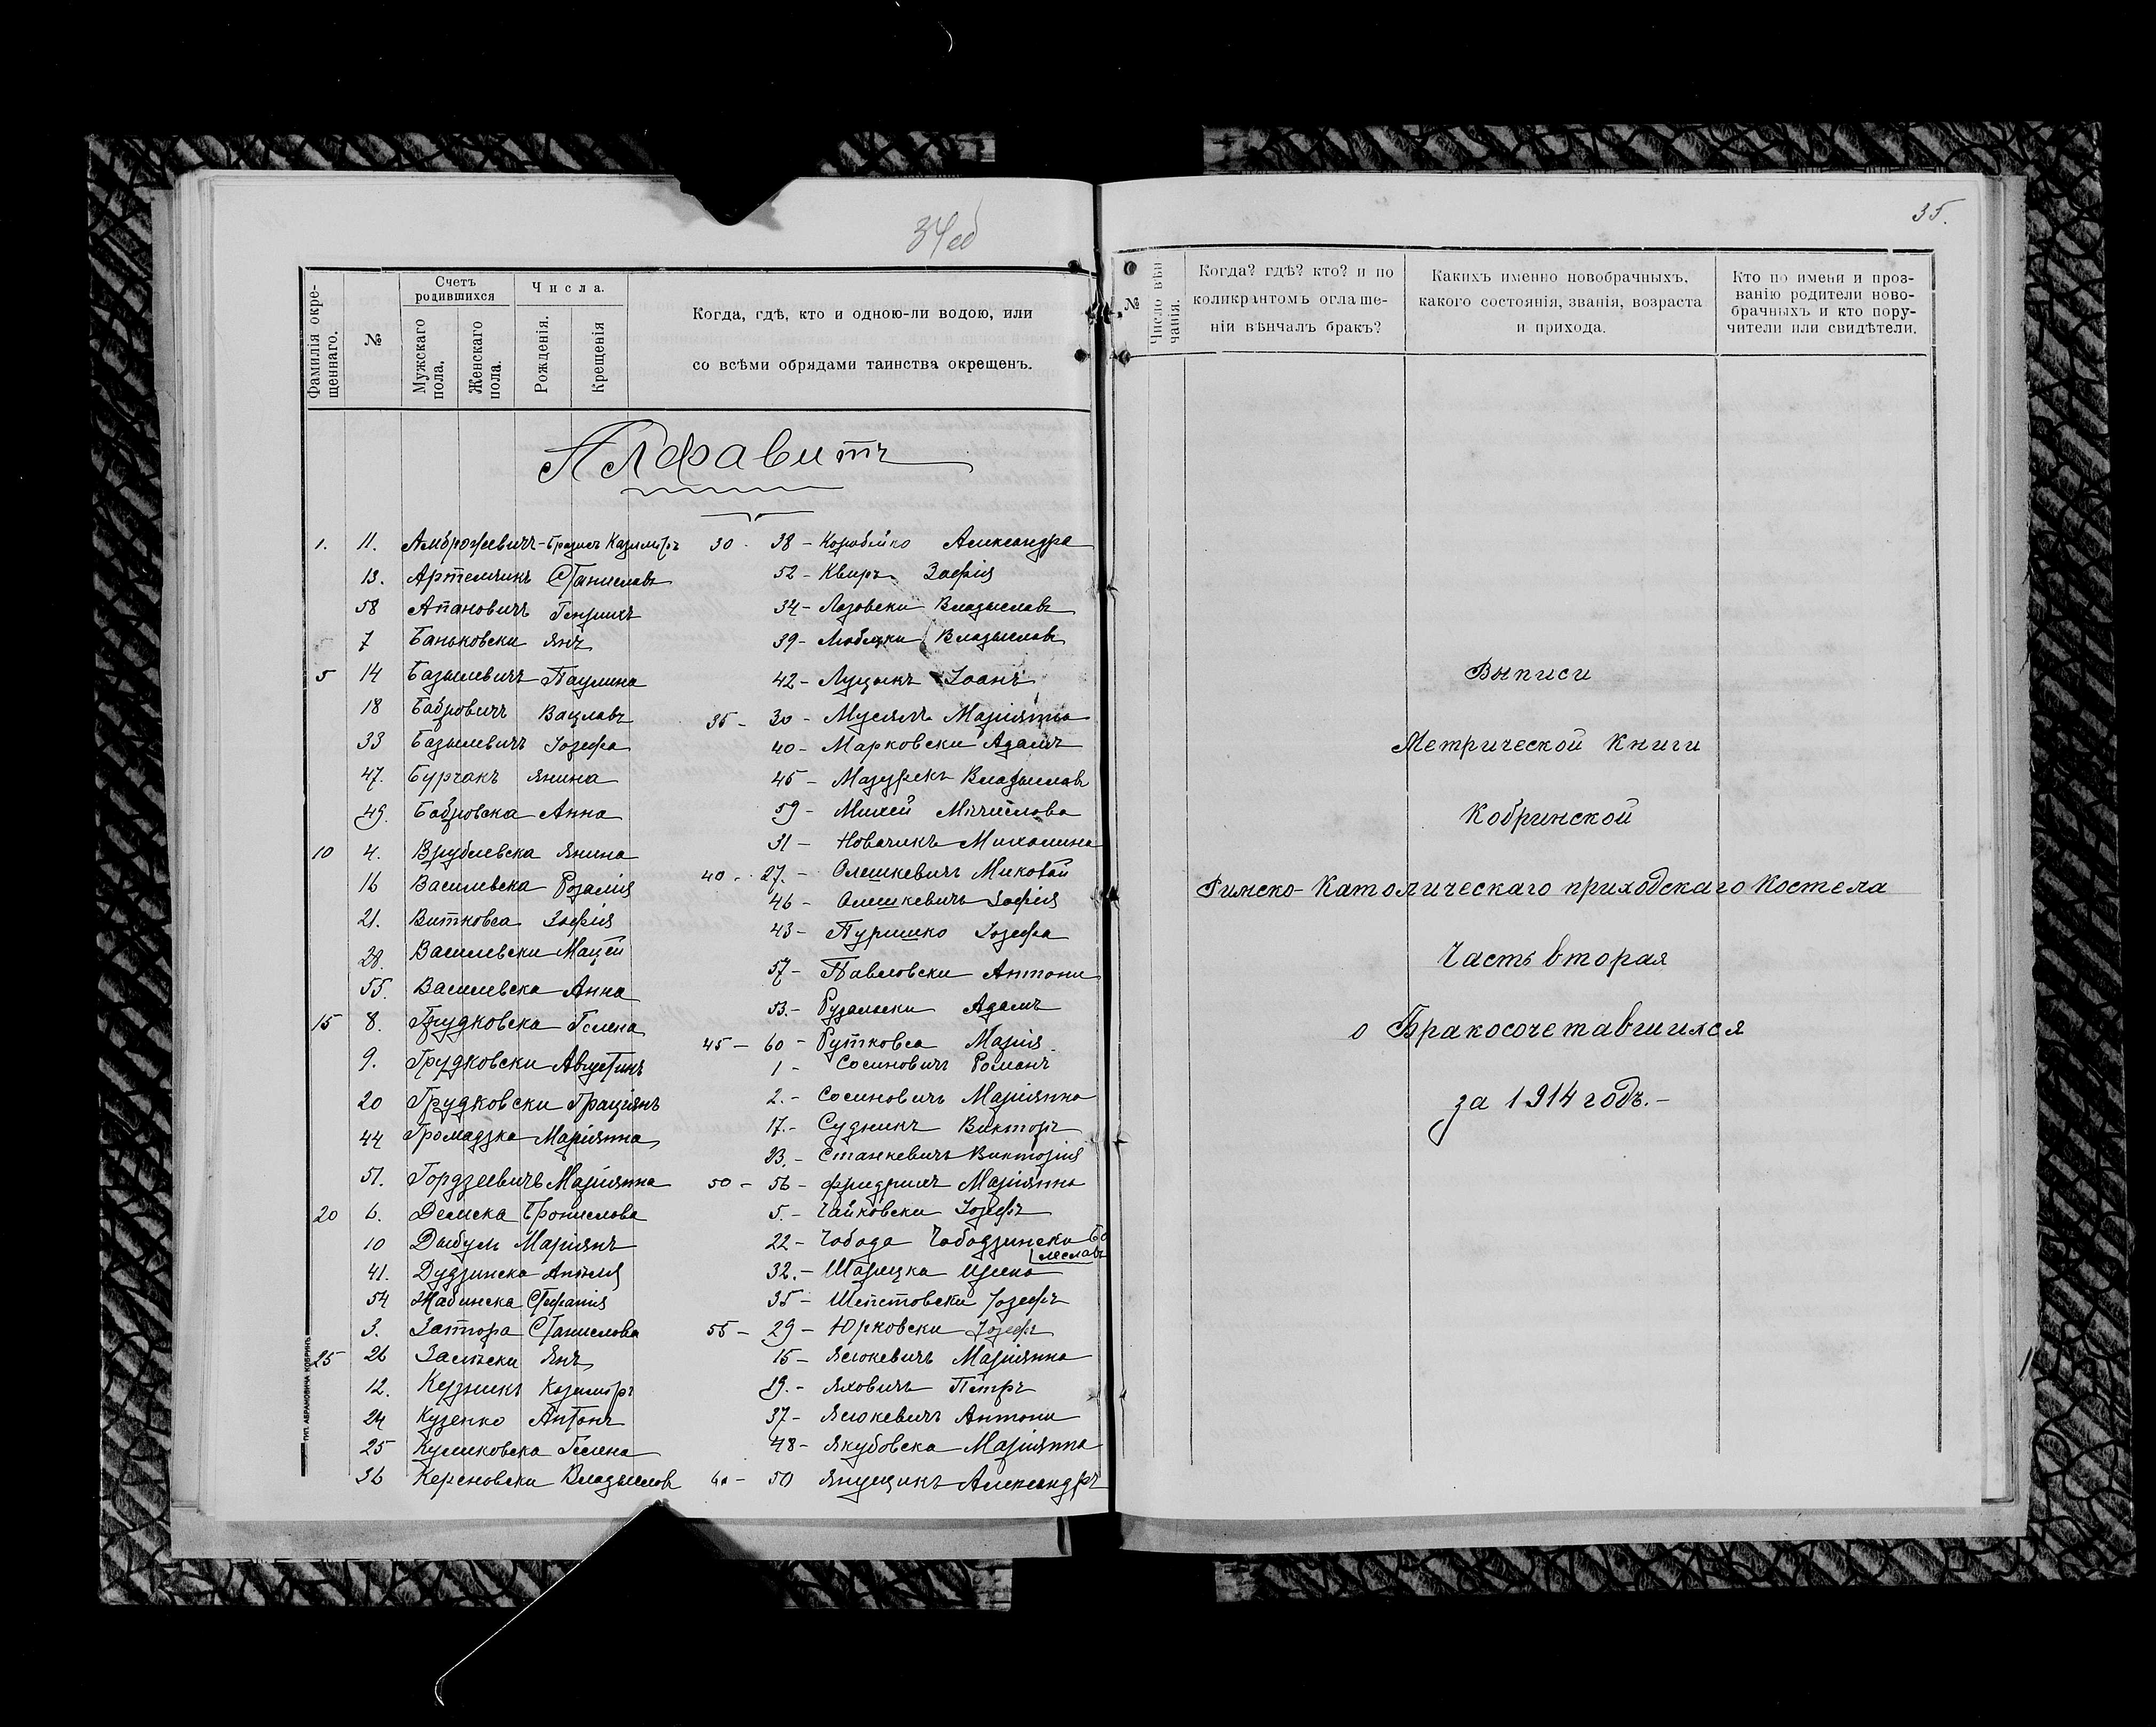 34 об
Фамилія окре-
щеннаго.
№
Счетъ
родившихся
Мужскаго
пола.
Женскаго
пола.
Числа.
Рожденія.
Крещенія
Когда, гдѣ, кто и одною-ли водою, или
со всѣми обрядами таинства окрещенъ.
Алфавитъ
1. 11. Амброжевичъ- Казимѣръ
13. Артемчикъ Станиславъ
58 Апановичъ Генрикъ
7 Баньковски Янъ
5 14 Базылевичъ Паулина
18 Бобровичъ Вацлавъ
33 Базылевичъ Іозефа
47. Бурчакъ Янина
49. Бобровска Анна
10 4. Врублевска Янина
16 Василевска Розалія
21. Витковса Зофія
28. Василевски Мацей
55. Василевска Анна
15 8. Грудковска Гелена
9. Грудковски Августинъ
20 Грудковски Граціянъ
44 Громадзка Маріянна
51. Гордзеевичъ Маріянна
20 6. Демска Бронислава
10 Дыбулъ Маріянъ
41. Дудзинска Анеля
54 Жабинска Стефанія
3. Затора Станислава
25 26 Залѣски Янъ
12. Кузникъ Казимѣръ
24 Кузенко Антонъ
25 Куликовска Гелена
36 Керсновски Владыславъ
30 - 38 - Коробейко Александра
52 - Квиръ Зофія
34 - Лозовски Владыславъ
39 - Любецки Владыславъ
42 - Луцыкъ Іоанъ
35 - 30 - Мусялъ Маріянна
40 - Марковски Адамъ
45 - Мазурекъ Владыславъ
59 - Михей Мѣчислава
31 - Новачикъ Михалина
40 - 27. - Олешкевичъ Миколай
46 - Олешкевичъ Зофія
43 - Пуришко Іозефа
57 - Павловски Антони
53. - Рузальски Адамъ
45 - 60 - Рутковса Марія
1 - Сосиновичъ Романъ
2. - Сосиновичъ Маріянна
17. - Судникъ Викторъ
23. - Станкевичъ Викторія
50 - 56 - Фридрихъ Маріянна
5. - Чайковски Іозефъ
22 - Чобода Чободзински Бо
леславъ
32. - Шарицка Ирена
35 - Шепстовски Іозефъ
55 - 29 - Юрковски Іозефъ
15 - Ясюкевичъ Маріянна
19. - Яховичъ Петръ
37 - Ясюкевичъ Антони
48 - Якубовска Маріянна
60 - 50 Янущикъ Александръ
ТИП. АБРАМОВИЧА КОБРИНЪ
35.
№
Число вѣн
чанія.
Когда? гдѣ? кто? и по
коликрантомъ оглаше-
ніи вѣнчалъ бракъ?
Какихъ именно новобрачныхъ,
какого состоянія, званія, возраста
и прихода.
Кто по имени и проз-
ванію родители ново-
брачныхъ и кто пору-
чители или свидѣтели.
Выписи
Метрической Книги
Кобринской
Римско-Католическаго приходскаго Костела
Часть вторая
о Бракосочетавшихся
за 1914 годъ.-